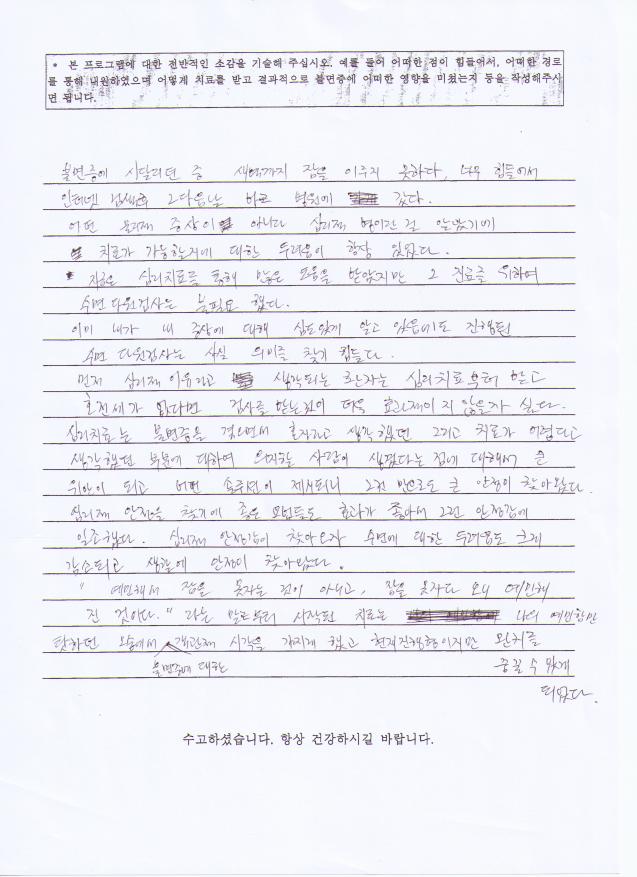 * 본 프로그램에 대한 전반적인 소감을 기술해 주십시오. 예를 들어 어떠한 점이 힘들어서, 어떠한 경로
를 통해 내원하였으며 어떻게 치료를 받고 결과적으로 불면증에 어떠한 영향을 미쳤는지 등을 작성해주시
면 됩니다.
불면증에 시달리던 중 새벽까지 잠을 이루지 못하다, 너무 힘들어서
인터넷 검색후 그다음날 바로 병원에 갔다.
어떤 육체적 증상이 아니라 심리적 학인건 걸 알았기에
치료가 가능할지에 대한 두려움이 항상 있었다.
* 치료은 심리치료를 통해 많은 도움을 받았지만 그 진료를 위하여
수면다원검사는 불필요 했다.
이미 내가 내 증상에 대해 심도있게 알고 있음에도 진행된
수면다원검사는 사실 의미를 찾기 힘들다.
먼저 심리적 이유라고 생각되는 환자는 심리치료부터 받고
호전세가 없다면 검사를 받는것이 더욱 효과적이지 않을까 싶다.
심리치료는 불면증을 겪으면서 혼자라고 생각했던 그리고 치료가 어렵다고
생각했던 부분에 대하여 의지할 사람이 생겼다는 점에 대해서 큰
위안이 되고 어떤 솔루션이 제시되니 그것 만으로도 큰 안정이 찾아왔다.
심리적 안정을 찾기에 좋은 방법들도 효과가 좋아서 그런 안정감에
일조했다. 심리적 안정감이 찾아오자 수면에 대한 두려움도 크게
감소되고 생활에 안정이 찾아왔다.
" 예민해서 잠을 못자는 것이 아니고, 잠을 못자다 보니 예민해
진 것이다. " 라는 말로부터 시작된 치료는 나의 예민함만
탓하던 와중에서 불면증에 대한 객관적 시각을 가지게 했고 현재진행형이지만 완치를
꿈꿀 수 있게
되었다.
수고하셨습니다. 항상 건강하시길 바랍니다.